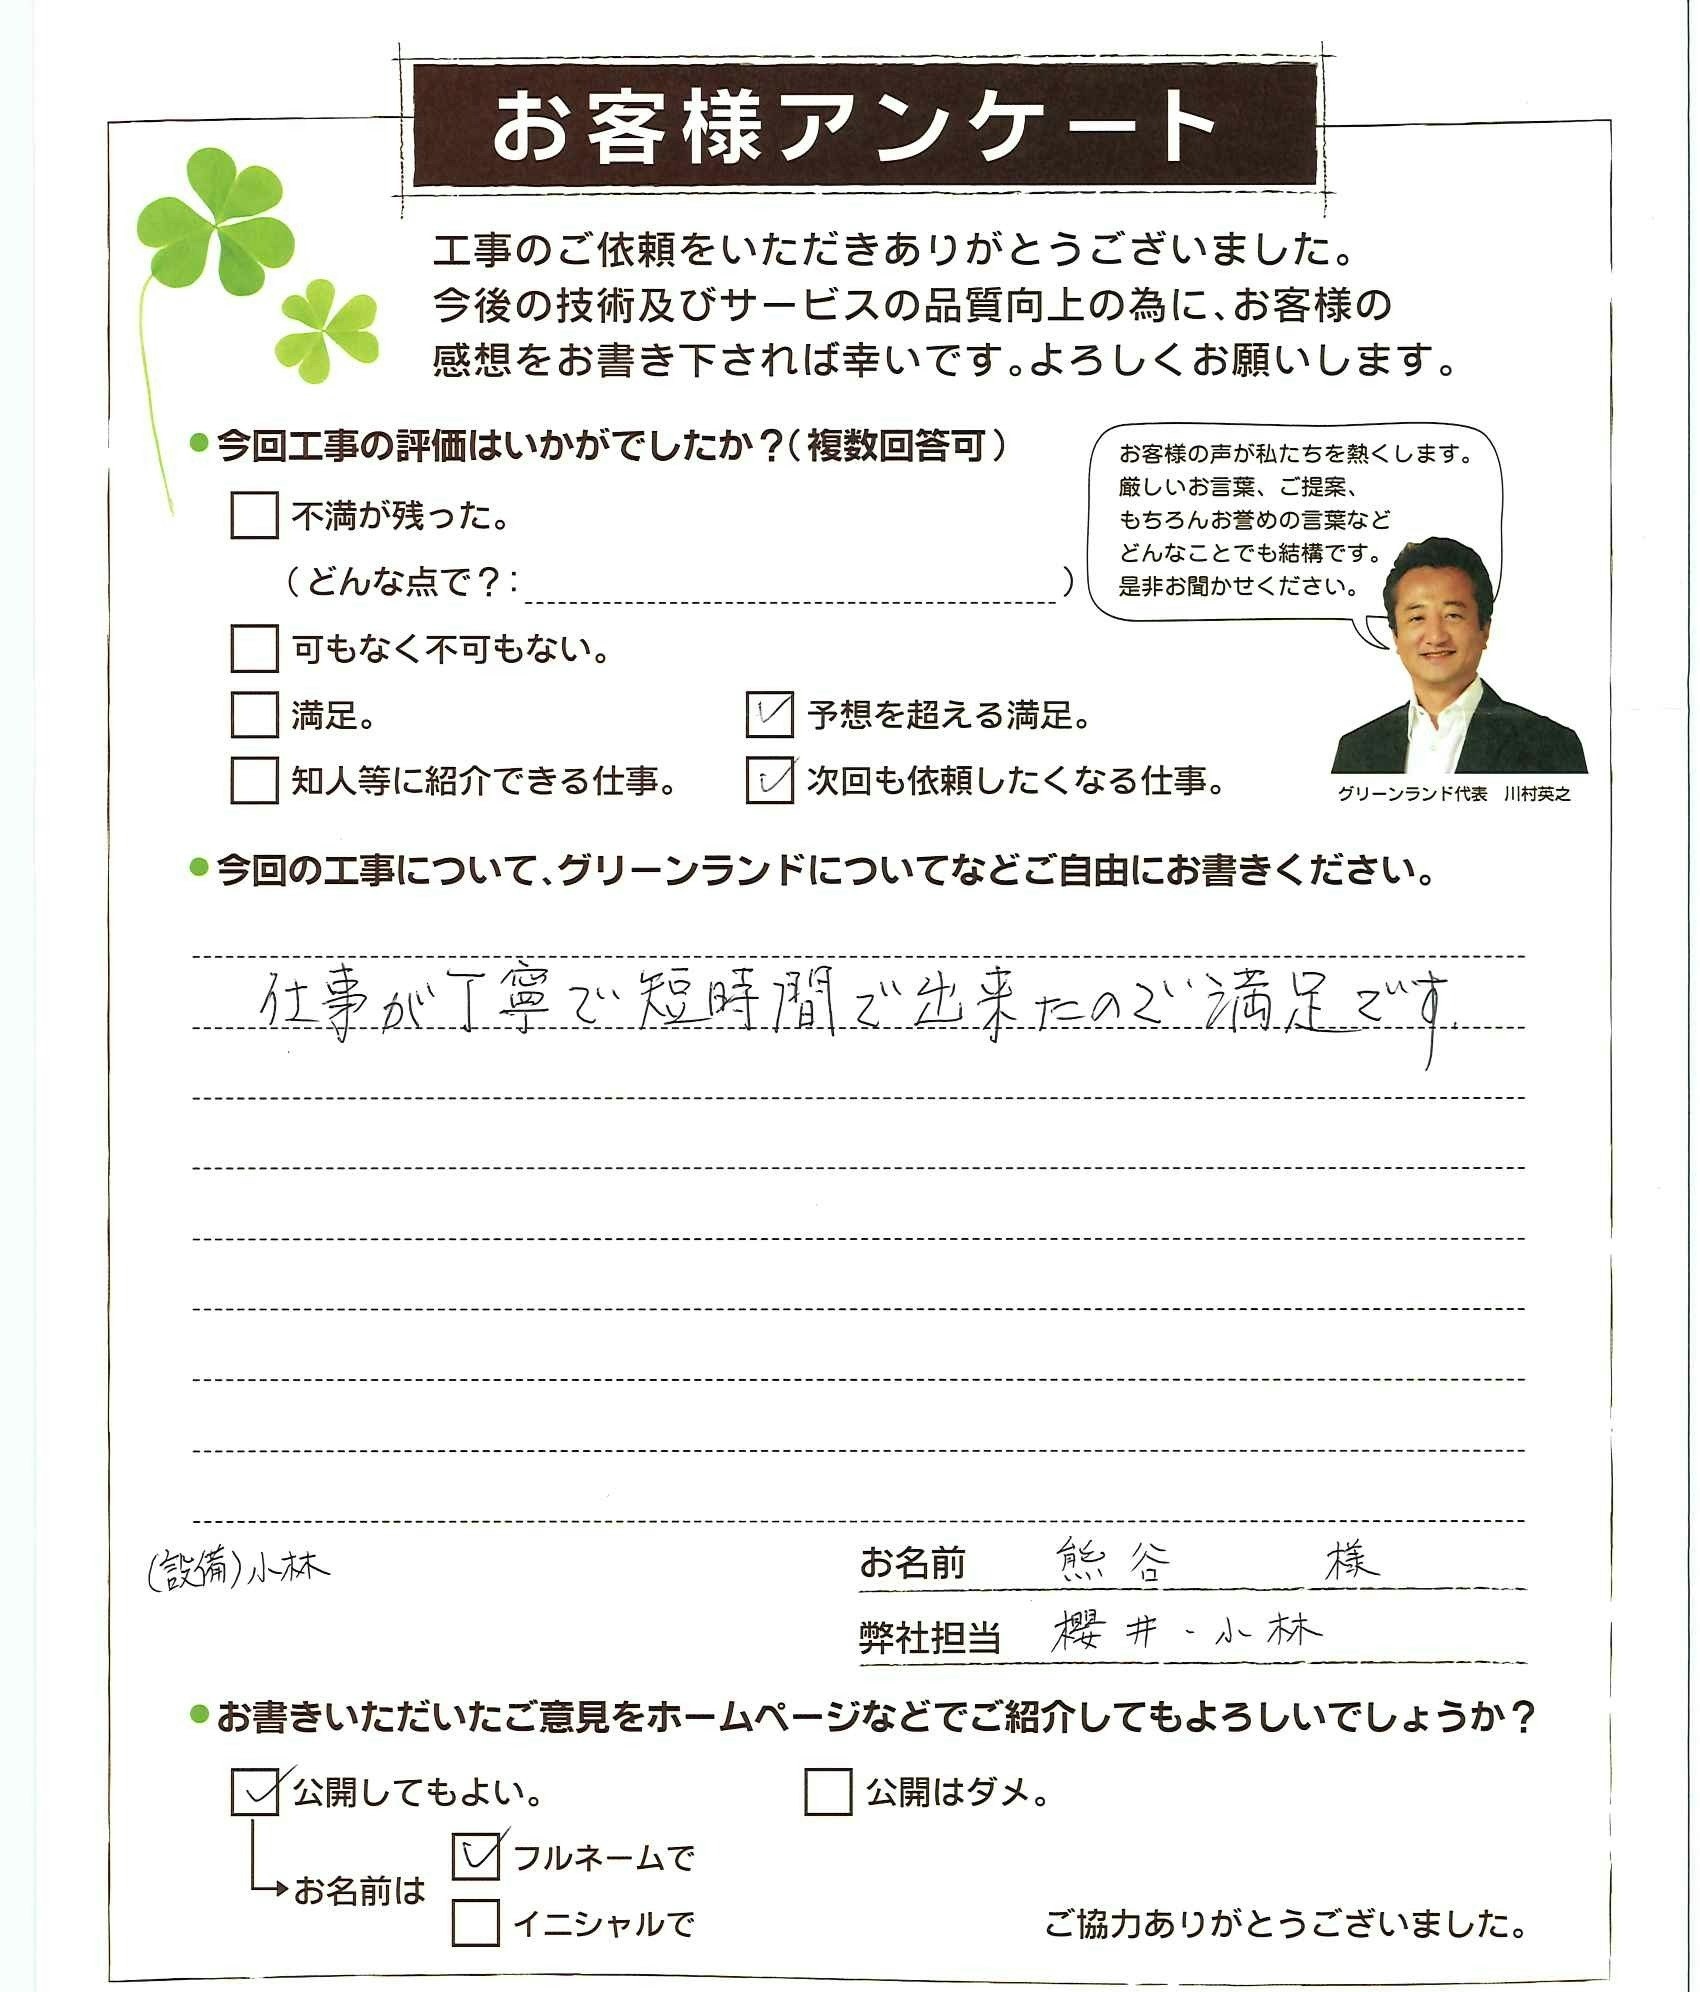 お客様アンケート
工事のご依頼をいただきありがとうございました。
今後の技術及びサービスの品質向上の為に、お客様の
感想をお書き下されば幸いです。よろしくお願いします。
●今回工事の評価はいかがでしたか？（複数回答可）
不満が残った。
（どんな点で？：　）
可もなく不可もない。
満足。
予想を超える満足。
知人等に紹介できる仕事。
次回も依頼したくなる仕事。
お客様の声が私たちを熱くします。
厳しいお言葉、ご提案、
もちろんお誉めの言葉など
どんなことでも結構です。
是非お聞かせください。
グリーンランド代表　川村英之
●今回の工事について、グリーンランドについてなどご自由にお書きください。
仕事が丁寧で短時間で出来たので満足です.
(設備)小林
お名前　熊谷　様
弊社担当　櫻井・小林
●お書きいただいたご意見をホームページなどでご紹介してもよろしいでしょうか？
公開してもよい。
公開はダメ。
お名前は
フルネームで
イニシャルで
ご協力ありがとうございました。